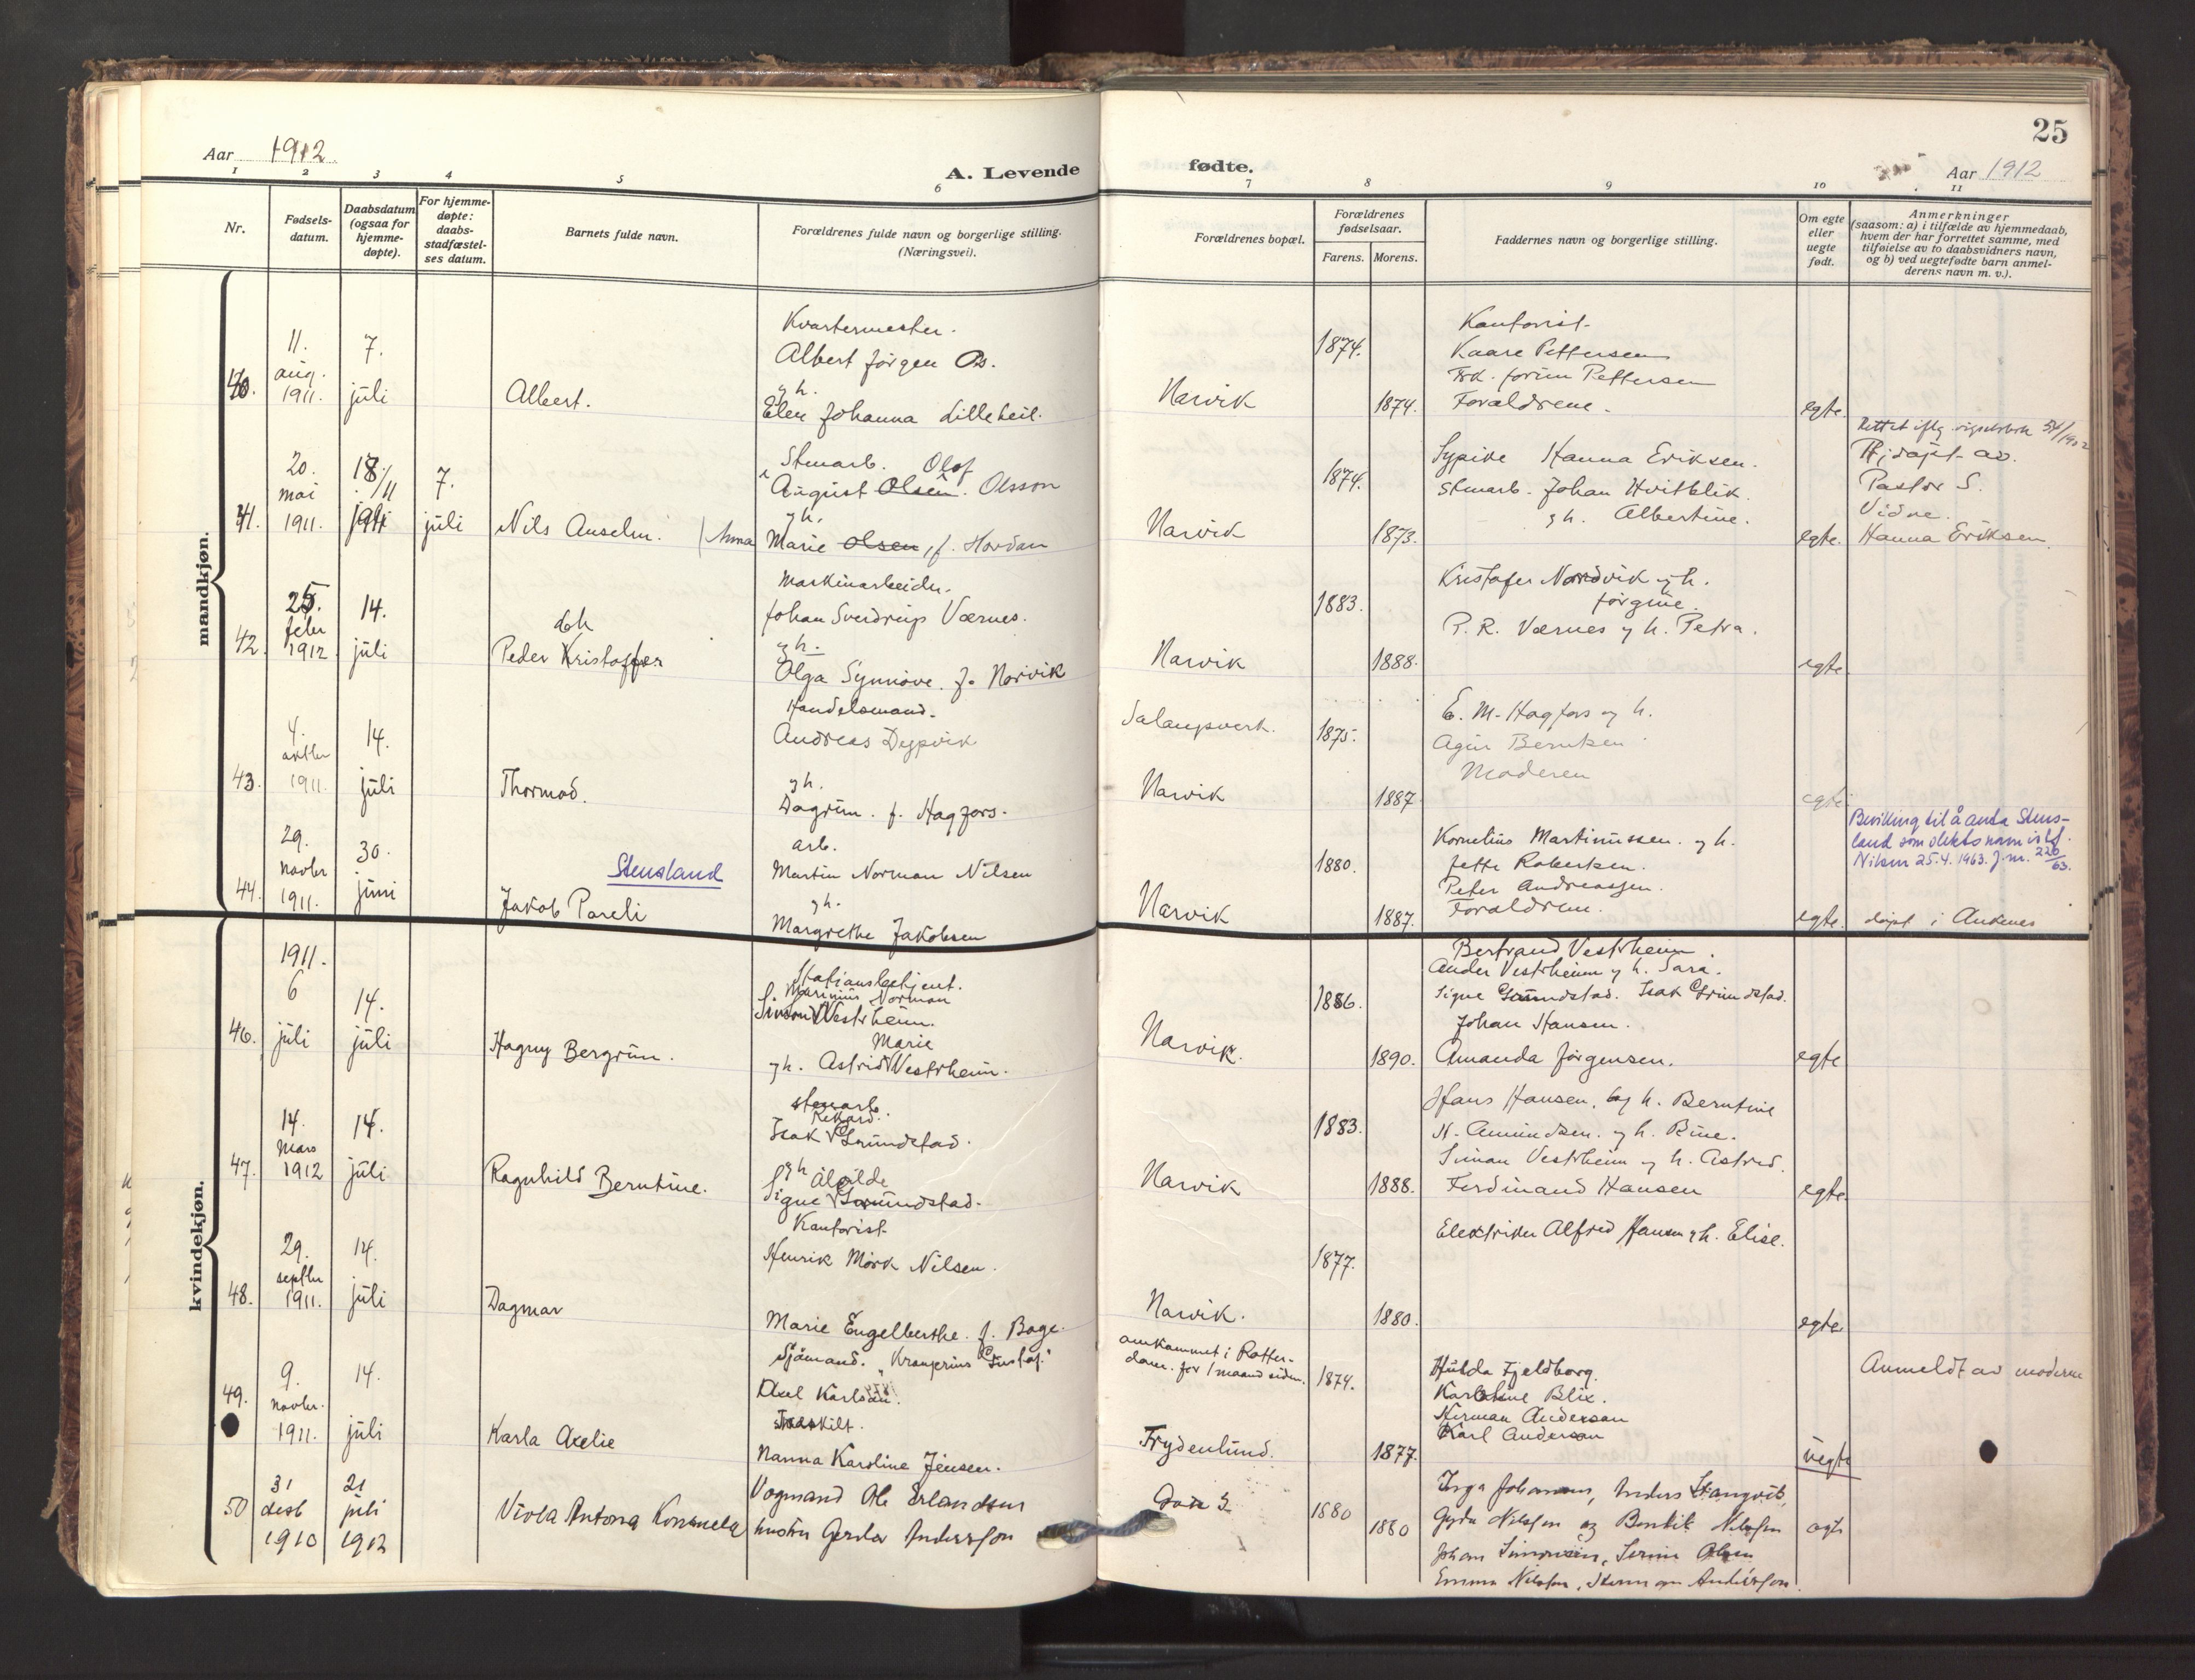 25
Aar 1912
A. Levende fødte.
Aar 1912
1 2 3 4 5 6 7 8 9 10 11
Nr.
Fødsels-
datum.
Daabsdatum
(ogsaa for
hjemme-
døpte).
For hjemme-
døpte:
daabs-
stadfæstel-
ses datum.
Barnets fulde navn.
Forældrenes fulde navn og borgerlige stilling.
(Næringsvei).
Forældrenes bopæl.
Forældrenes
fødselsaar.
Farens. Morens.
Faddernes navn og borgerlige stilling.
Om egte
eller
uegte
født.
Anmerkninger
(saasom: a) i tilfælde av hjemmedaab,
hvem der har forrettet samme, med
tilføielse av to daabsvidners navn,
og b) ved uegtefødte barn anmel-
derens navn m. v.).
mandkjøn.
40.
11.
aug.
1911.
7.
juli
Albert.
Kvartermester.
Albert Jörgen Os.
g h.
Elen Johanna Lilleheil.
Narvik
1874.
1874.
Kontorist
Kaare Pettersen
Frk. Jorun Pettersen
Forældrene.
egte.
41.
20.
mai
1911.
18/11
1911
7.
juli
Nils Anselm.
Stenarb. Olof
August Olsen. Olsson
g h.
Anna Marie Olsen, f. Hordan
Narvik
1874.
1873.
Sypike Hanna Eriksen.
Stenarb. Johan Hvitblik.
g h. Albertine.
egte.
Hj. döpt av
Pastor S.
Vidne.
Hanna Eriksen
42.
25.
febr
1912
14.
juli
Peder Kristoffer
Maskinarbeider.
Johan Sverdrup Værnes.
g h.
Olga Synnöve. f. Norvik
Narvik
1883.
1888.
Kristofer Nordvik g h.
Jörgine.
P. R. Værnes g h. Petra.
egte
43.
4.
oktbr
1911.
14.
juli
Thormod.
Handelsmand.
Andreas Dypvik
g h.
Dagrun. f. Hagfors.
Salangsverk.
Narvik
1875.
1887
E. M. Hagfors g h.
Agin Berntsen
Moderen
egte
44.
29.
novbr
1911.
30.
juni
Stensland
Jakob Pareli
arb.
Martin Norman Nilsen
g h.
Margrethe Jakobsen
Narvik
1880.
1887.
Kornelius Martinussen. g h.
Jette Robertsen.
Peter Andreassen.
Forældrene.
egte.
Bevilling til å anta Stens-
land som slektsnavn istf.
Nilsen 25.4.1963. J.nr. 220/63.
döpt i Ankenes
kvindekjøn.
46.
1911.
6
juli
14.
juli
Hagny Bergrun.
Stationsbetjent.
Marinius Norman
Simon Vestrheim.
Marie
g h. Astrid Vestrheim.
Narvik.
1886.
1890.
Bertrand Vestrheim.
Ander Vestrheim g h. Sara.
Signe Grundstad. Isak Grundstad.
Johan Hansen.
Amanda Jörgensen.
egte
47.
14.
mars
1912
14.
juli
Ragnhild Berntine.
stenarb.
Rikard.
Isak Grundstad.
g h Alvilde
Signe Grundstad.
Narvik
1883.
1888.
Hans Hansen. og h. Berntine
N. Amundsen. g h. Bine.
Simon Vestrheim g h. Astrid.
Ferdinand Hansen
egte.
48.
29.
septbr
1911.
14.
juli
Dagmar
Kontorist
Henrik Mörk Nilsen.
Marie Engelberthe. f. Bage.
Narvik.
1877.
1880.
Elektriker Alfred Hansen g h. Elise.
egte
49.
9.
novbr.
1911.
14.
juli
Karla Axelie
Sjömand. "Kronprins Gustaf."
Axel Karlson.
Nanna Karoline Jensen.
omkommet i Rotter-
dam. for 1 maaned siden.
Frydenlund.
1874.
1877.
Hulda Fjeldborg.
Karoline Blix.
Herman Anderson
Karl Anderson
uegte
Anmeldt av moderen
50
31
desb
1910
21
juli
1912
Viola Antona Kornelia
Vogmand Ole Erlandsen
hustru Gerda Anderssson
1880
1880
Inga Johansen, Anders Strangvik,
Gyda Nilssen og Bendik Nilssen
Johan Simonsen, Serine Olsen
Emma Nilssen, Herman Anderssson.
egte